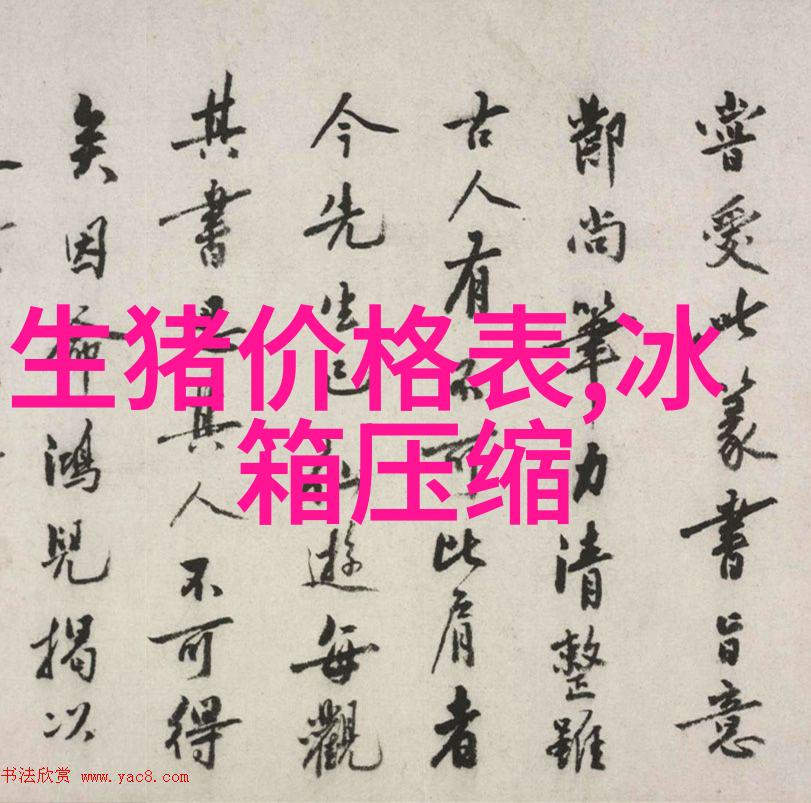 生猪价格表,冰
箱压缩
嘗愛此篆書旨意
尚筆力清整雖
古人有不可比肩者
今先生已遊每觀
其書思其人不可得
矣因命鴻兒揭以
书法欣赏 www.yac8.com